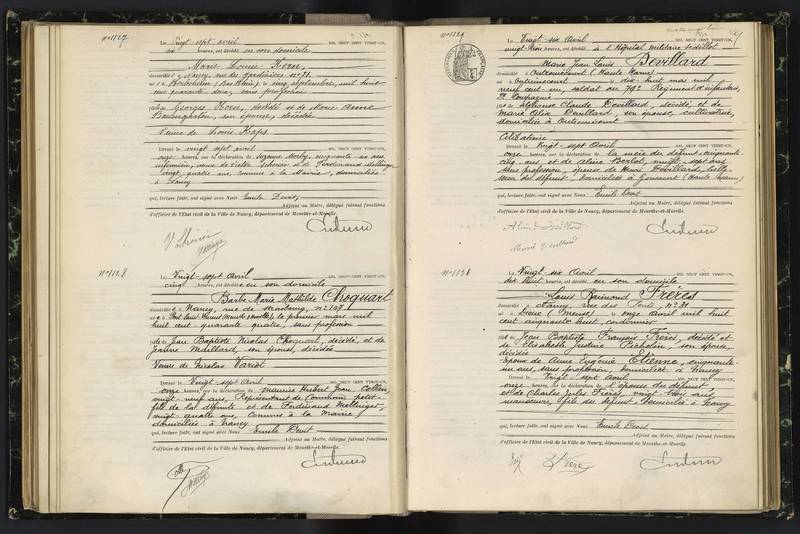 N° 1127
Le Vingt sept avril MIL NEUF CENT VINGT-UN,
heures, est décédée en son domicile
Marie Louise Korn,
domiciliée à Nancy, rue des Jardiniers n° 71,
sept septembre, mil huit
cent soixante deux, sans profession
Georges Korn, décédé et de Marie Anne
son épouse, décédée
Veuve de Louis Kaps
Devant le vingt sept avril MIL NEUF CENT VINGT-UN,
onze heures, sur la déclaration de Suzanne
et de Ferdinand Mellinger
vingt quatre ans, commis à la Mairie, domiciliés
à Nancy
qui, lecture faite, ont signé avec Nous Emile Devit,
Adjoint au Maire, délégué faisant fonctions
d'officier de l'État civil de la Ville de Nancy, département de Meurthe-et-Moselle.
N° 1128
Le Vingt-sept avril MIL NEUF CENT VINGT-UN,
cinq heures, est décédée en son domicile
Barbe Marie Mathilde Choquart
domiciliée à Nancy, rue de Strasbourg, n° 107
le premier mars mil
huit cent quarante quatre, sans profession
de Jean Baptiste Nicolas Choquart, décédé, et de
Jeanne Maillard, son épouse, décédée
Veuve de Nicolas Variot
Devant le Vingt-sept avril MIL NEUF CENT VINGT-UN,
onze heures, sur la déclaration de Maurice Hubert Jean Collin,
vingt neuf ans, Représentant de Commerce petit-
fils de la défunte et de Ferdinand Mellinger,
vingt quatre ans, Commis à la Mairie
domiciliés à Nancy
qui, lecture faite, ont signé avec Nous Emile Devit
Adjoint au Maire, délégué faisant fonctions
d'officier de l'État civil de la Ville de Nancy, département de Meurthe-et-Moselle.
N° 1129
Le Vingt-six avril MIL NEUF CENT VINGT-UN,
vingt trois heures, est décédé à l'Hôpital militaire Sédillot
Marie Jean Louis Devillard
domicilié à Outremécourt (Haute Marne)
né à Outremécourt le dix huit mai mil
neuf cent un, soldat au 79e Régiment d'infanterie,
Compagnie
fils de Alphonse Claude Devillard, décédé, et de
Marie son épouse, cultivatrice,
domiciliée à Outremécourt
Célibataire
Devant le Vingt-sept avril MIL NEUF CENT VINGT-UN,
onze heures, sur la déclaration de la mère du défunt, cinquante
cinq ans, et de vingt-sept ans
sans profession, épouse de Henri Devillard, belle-
sœur du défunt, domiciliées à (Haute Marne)
qui, lecture faite, ont signé avec Nous Emile Devit
Adjoint au Maire, délégué faisant fonctions
d'officier de l'État civil de la Ville de Nancy, département de Meurthe-et-Moselle.
N° 1130
Le Vingt six avril MIL NEUF CENT VINGT-UN,
dix huit heures, est décédé en son domicile
Louis Raimond Frères
domicilié à Nancy, rue des Ponts n° 31
né à Dieue (Meuse) le onze avril mil huit
cent cinquante huit, cordonnier
fils de Jean Baptiste François Frères, décédé et
de Elisabeth Justine son épouse,
décédée
Epoux de Anne Eugénie Etienne, cinquante-
un ans, sans profession, domiciliée à Nancy
Devant le Vingt-sept avril MIL NEUF CENT VINGT-UN,
onze heures, sur la déclaration de l'épouse du défunt
et de Charles Jules Frères, vingt trois ans,
manœuvre, fils du défunt, domiciliés à Nancy
qui, lecture faite, ont signé avec Nous Emile Devit
Adjoint au Maire, délégué faisant fonctions
d'officier de l'État civil de la Ville de Nancy, département de Meurthe-et-Moselle.